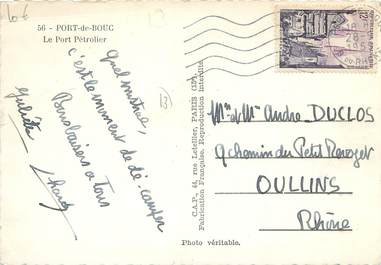 56 - PORT-de-BOUC
Le Port Pétrolier
Quel mistral,
c'est le moment de dé-camper
Bons baisers à tous
Juliette
C.A.P. - 44, rue Letellier, PARIS (15e)
Fabrication Française. Reproduction Interdite
Photo véritable.
Mr et Me Andre DUCLOS
9 chemin du Petit Revoyet
OULLINS
Rhône